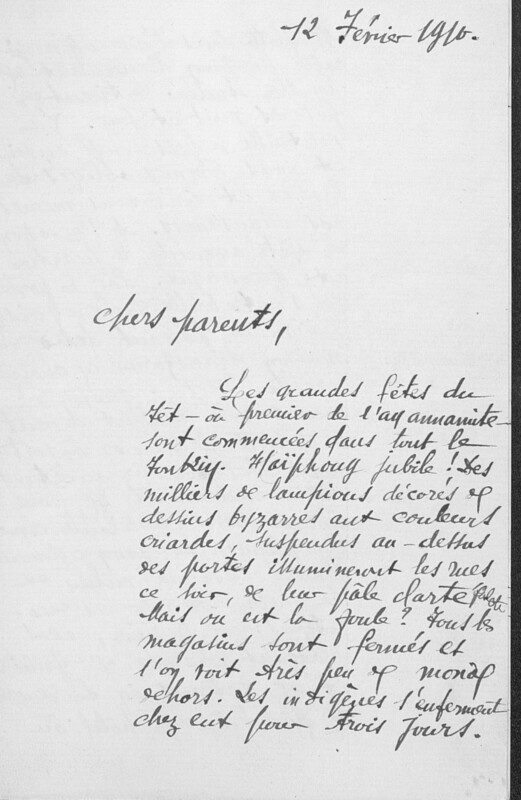 12 Février 1910.
Chers parents,
Les grandes fêtes du
Têt – ou premier de l'an annamite –
sont commencées dans tout le
Tonkin. Haïphong jubile ! Des
milliers de lampions décorés de
dessins bizarres aux couleurs
criardes, suspendus au-dessus
des portes illumineront les rues
ce soir, de leur pâle clarté
Mais où est la foule ? Tous les
magasins sont fermés et
l'on voit très peu de monde
dehors. Les indigènes s'enferment
chez eux pour trois jours.